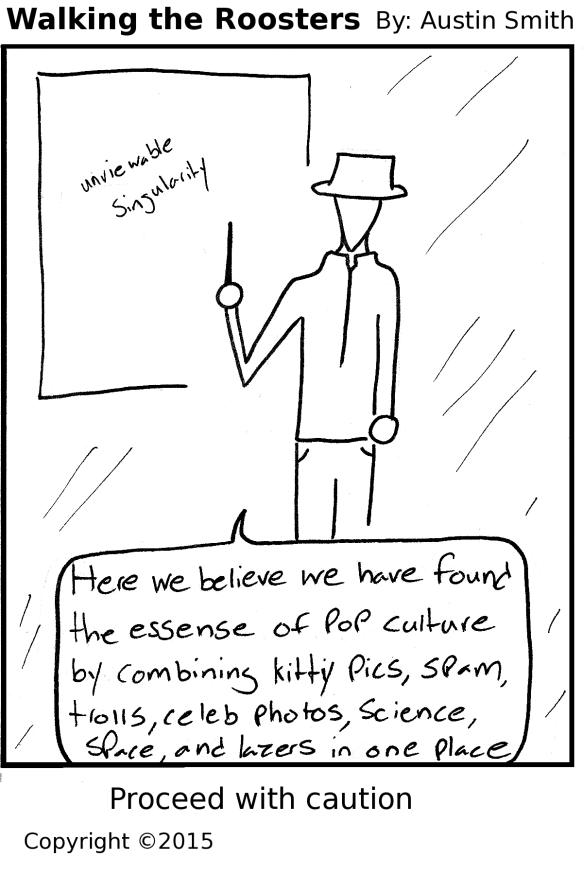 Walking the Roosters By: Austin Smith
unviewable
singularity
Here we believe we have found
the essense of PoP culture
by combining kitty Pics, SPam,
trolls, celeb Photos, Science,
SPace, and lazers in one Place
Proceed with caution
Copyright ©2015